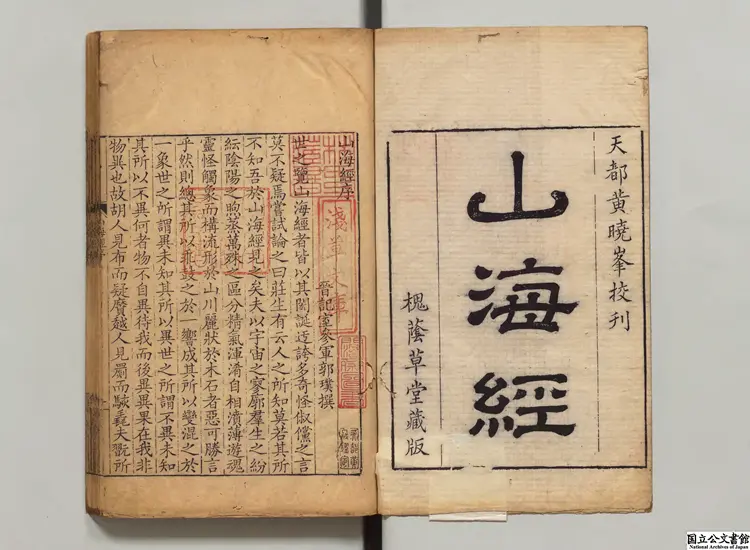 天都黃曉峯挍刊
山海經
槐蔭草堂藏版
山海經序
晉記室參軍郭璞撰
世之覽山海經者皆以其閎誕迂誇多奇怪俶儻之言
莫不疑焉嘗試論之曰莊生有云人之所知莫若其所
不知吾於山海經見之矣夫以宇宙之寥廓羣生之紛
紜陰陽之煦蒸萬殊之區分精氣渾淆自相濆薄遊魂
靈怪觸象而構流形於山川麗狀於木石者惡可勝言
乎然則總其所以乖鼓之於一響成其所以變混之於
一象世之所謂異未知其所以異世之所謂不異未知
其所以不異何者物不自異待我而後異異果在我非
物異也故胡人見布而疑黂越人見罽而駭毳夫翫所
淺草文庫
国立公文書館
National Archives of Japan